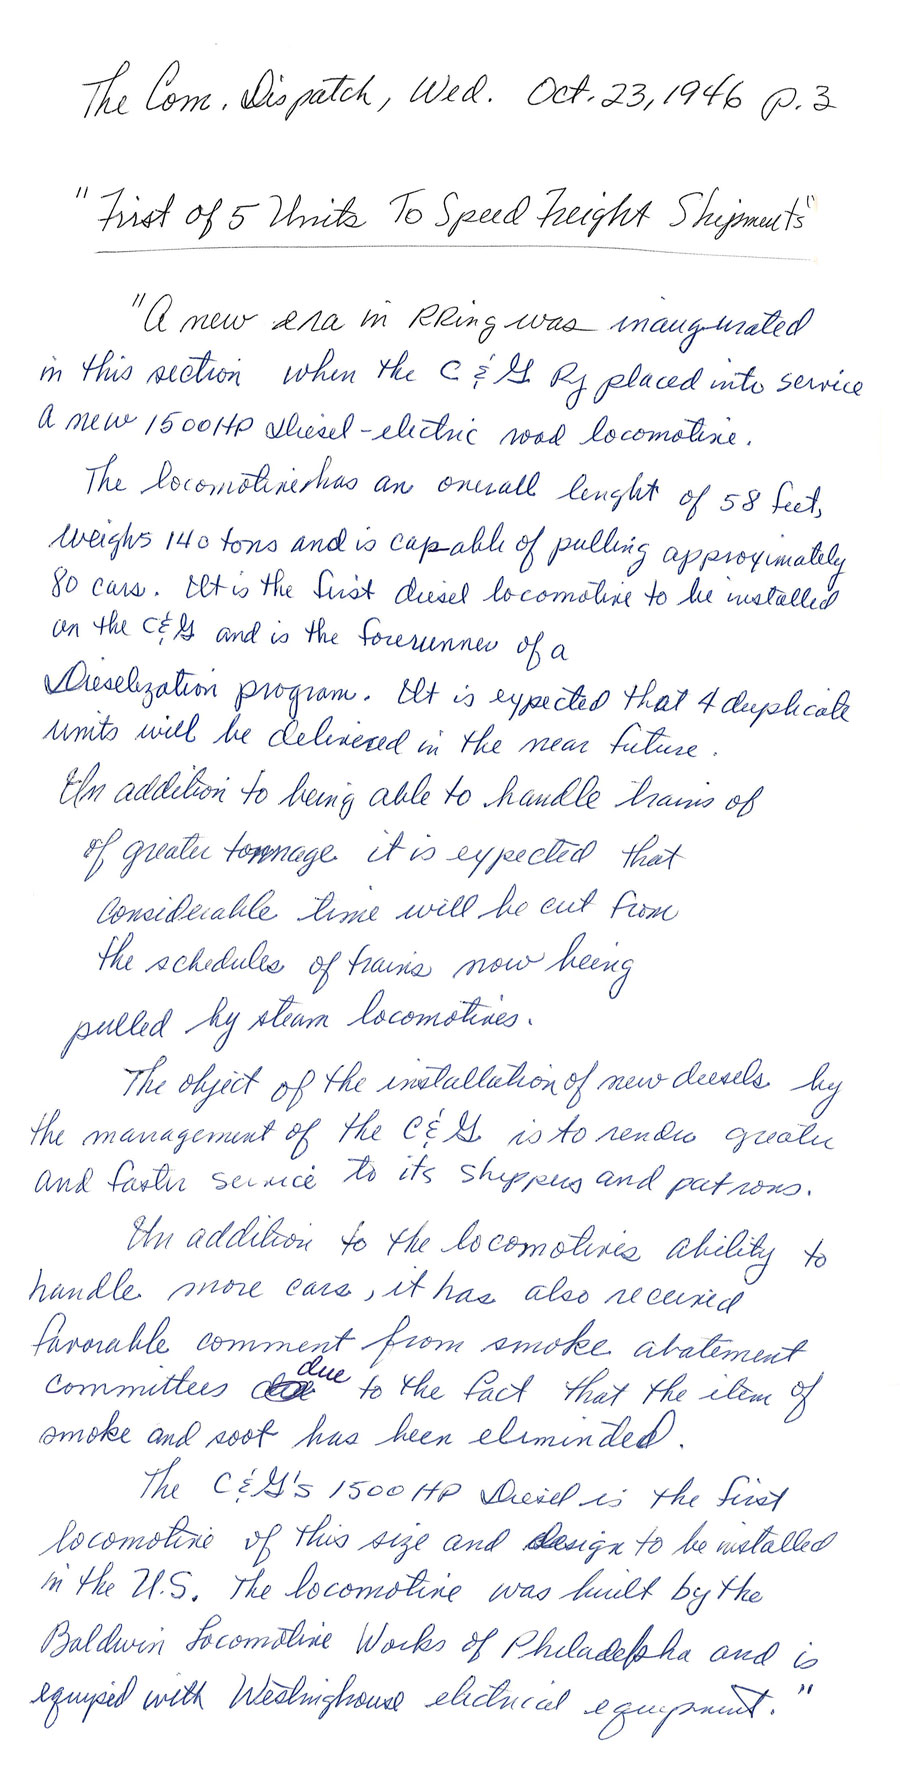 The Com. Dispatch, Wed. Oct. 23, 1946 p. 3
"First of 5 Units To Speed Freight Shipments"
"A new era in RRing was inaugurated
in this section when the C & G Ry placed into service
a new 1500 HP Diesel-electric road locomotive.
The locomotive has an overall lenght of 58 feet,
weighs 140 tons and is capable of pulling approximately
80 cars. It is the first diesel locomotive to be installed
on the C & G and is the forerunner of a
Dieselization program. It is expected that 4 duplicate
units will be delivered in the near future.
In addition to being able to handle trains of
of greater tonnage it is expected that
considerable time will be cut from
the schedules of trains now being
pulled by steam locomotives.
The object of the installation of new diesels by
the management of the C & G is to render greater
and faster service to its shippers and patrons.
In addition to the locomotives ability to
handle more cars, it has also received
favorable comment from smoke abatement
committees due to the fact that the item of
smoke and soot has been eliminded.
The C & G's 1500 HP Diesel is the first
locomotive of this size and design to be installed
in the U.S. The locomotive was built by the
Baldwin Locomotive Works of Philadelpha and is
equiped with Westinghouse electrical equipment."